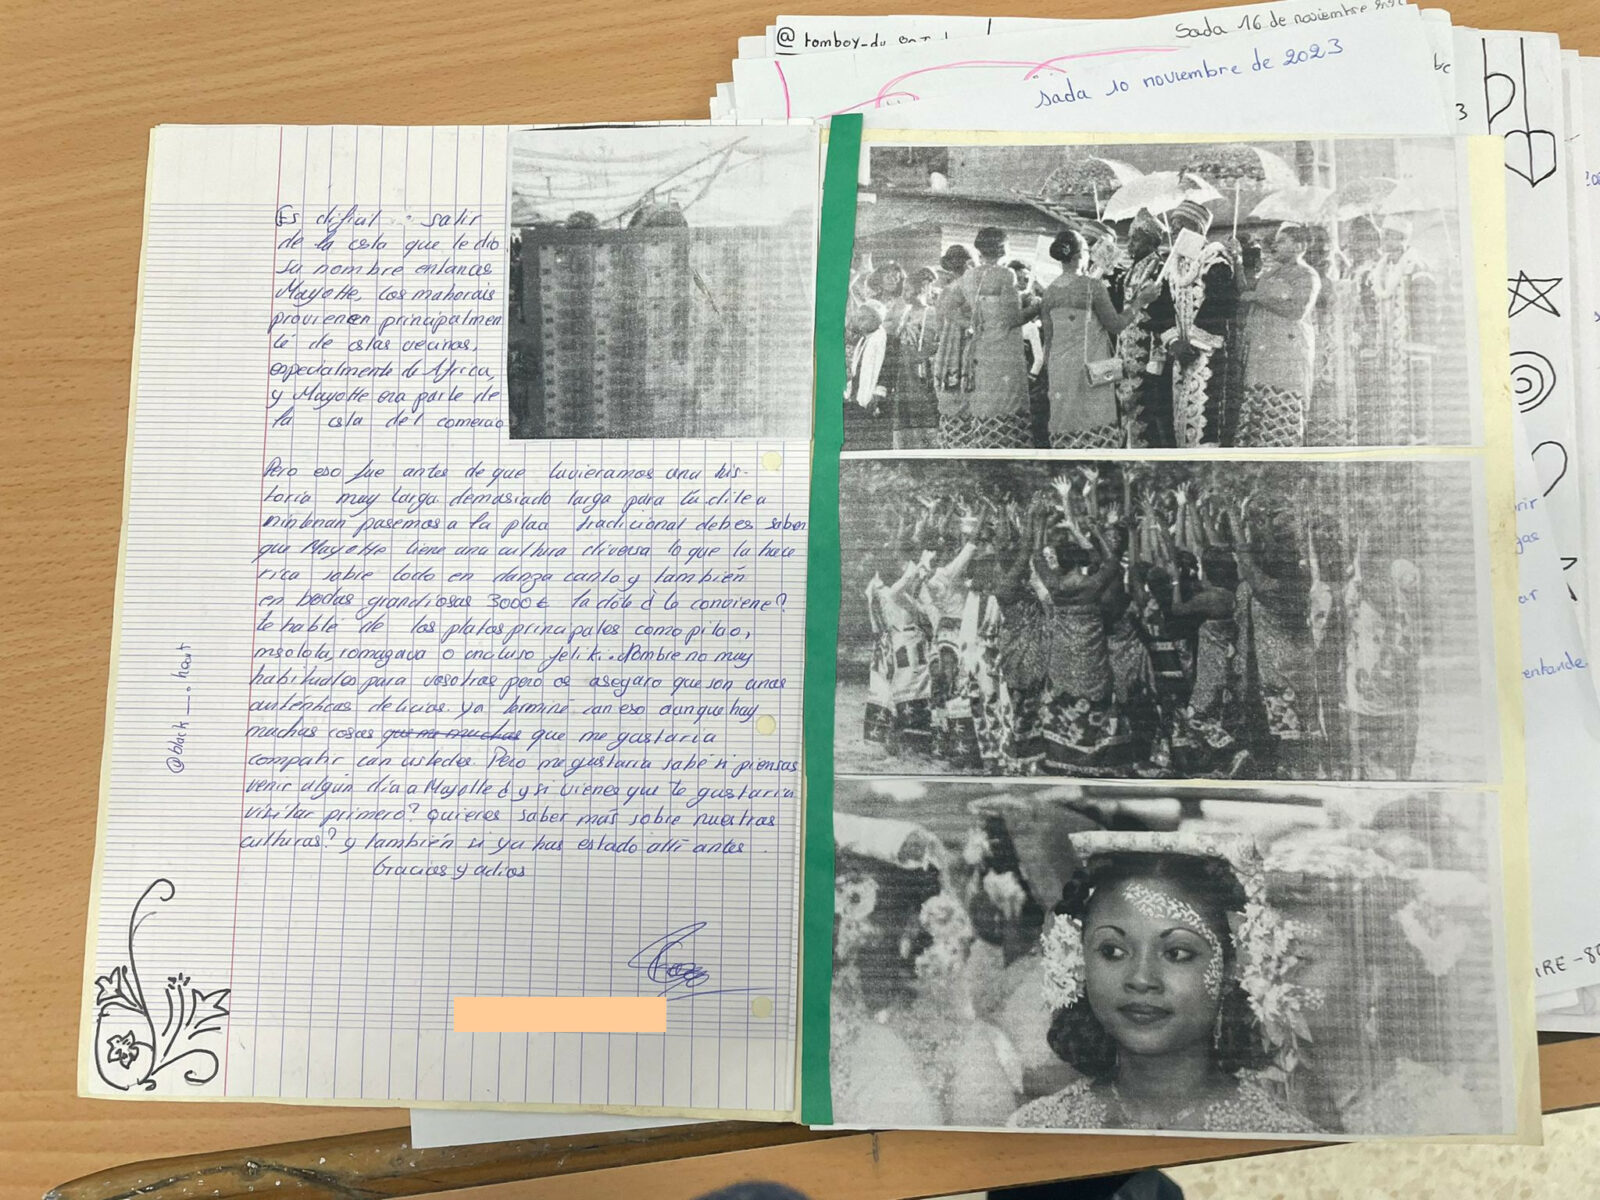 @tomboy-du
Sada 16 de noviembre
sada 10 noviembre de 2023
3
Es difial salir
de la isla que le dio
su nombre entances
Mayotte, los mahorais
provienen principalmen
te de islas vecinas,
especialmente de Africa,
y Mayotte era parte de
la isla del comercio
Pero eso fue antes de que tuvieramos una his-
toria muy larga demasiado larga para tu
pasemos a la tradicional debes saber
que Mayotte tiene una cultura diversa lo que la hace
rica sobre todo en danza canto y también
en bodas grandiosas 3000€ la dote d le conviene?
te hable de los platos principales como pilao,
msolola, romazava o incluso feliki. Nombre no muy
habituales para vosotras pero os aseguro que son unas
auténticas delicias. ya termine con eso aunque hay
muchas cosas que me muchas que me gustaria
compatir con ustedes. Pero me gustaria sabe si piensas
venir algún día a Mayotte d y si vienes que te gustaria
visitar primero? quieres saber mas sobre nuestras
culturas? y también si ya has estado alli antes.
Gracias y adios
@black__.hout
entande